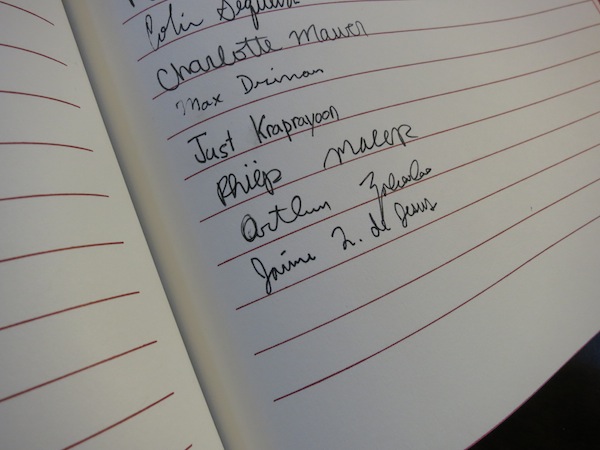 Colin
Charlotte Mawer
Max Drinan
Just Kraprayoon
Philip Macek
Arthur
Jaime L. de Jesus